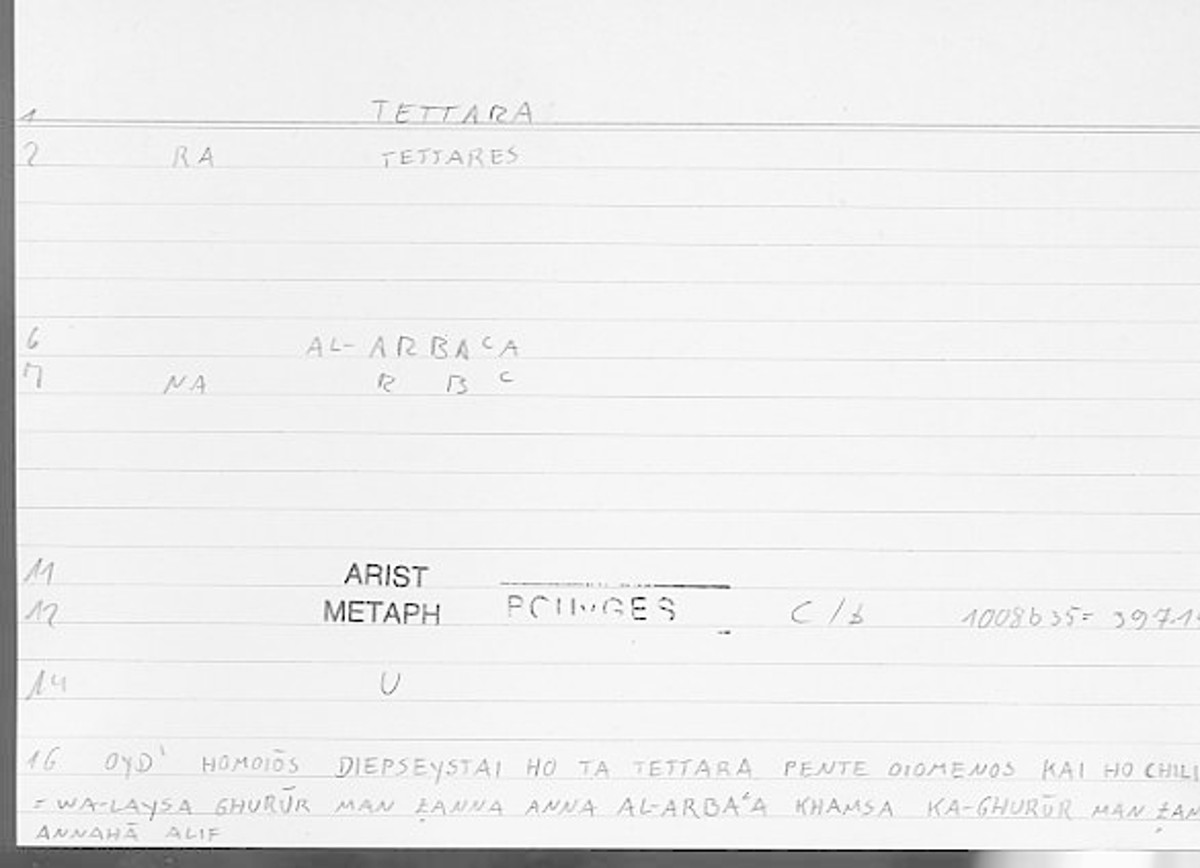 1 TETTARA
2 RA TETTARES
6 AL-ARBAᶜA
7 NA R B ᶜ
11 ARIST
12 METAPH C/b 1008b35= 397.1
14 U
16 OYD' HOMOIŌS DIEPSEYSTAI HO TA TETTARA PENTE OIOMENOS KAI HO CHILI
= WA-LAYSA GHURŪR MAN ẒANNA ANNA AL-ARBAᶜA KHAMSA KA-GHURŪR MAN ẒAN
ANNAHĀ ALIF